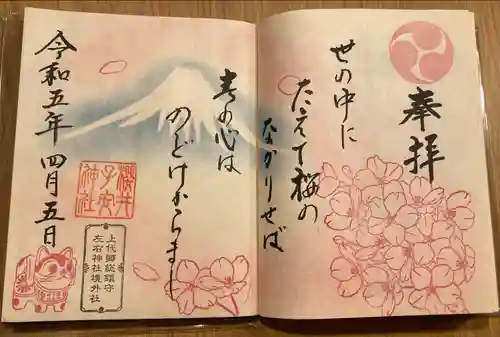 奉拝
世の中に
たえて桜の
なかりせば
春の心は
のどけからまし
櫻井
子安
神社
上代郷総鎮守
左右神社境外社
令和五年四月五日